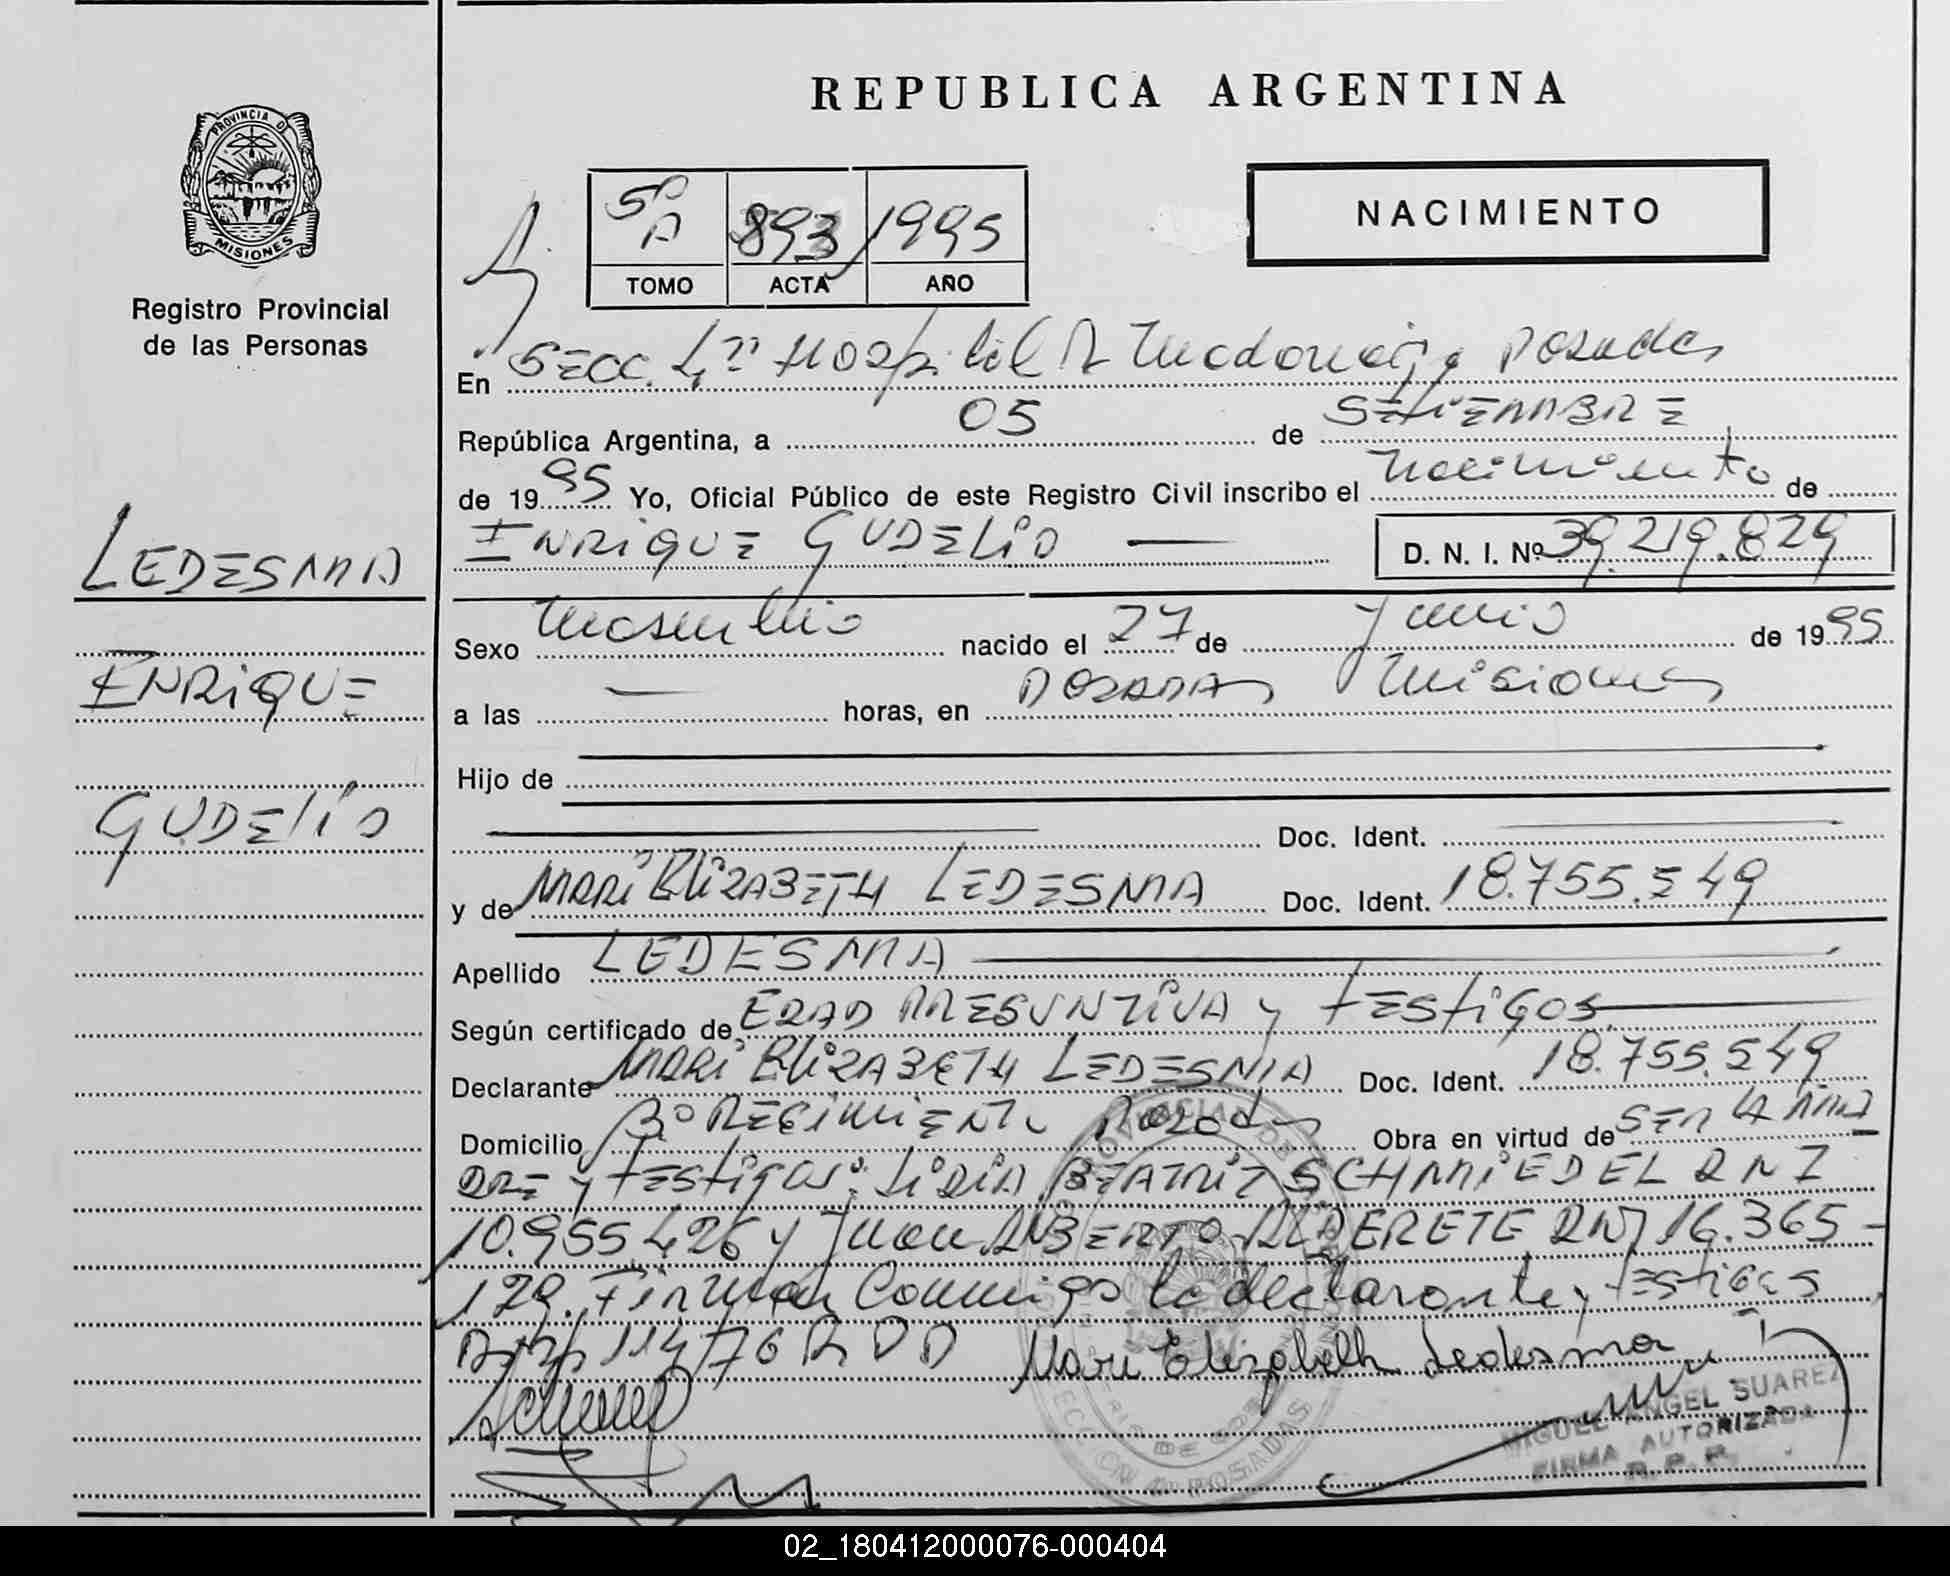 REPUBLICA ARGENTINA
PROVINCIA D
MISIONES
Registro Provincial
de las Personas
5º A 893 1995
TOMO ACTA AÑO
NACIMIENTO
En SECC. 4ª Hospital R Madariaga Posadas
República Argentina, a 05 de SETIEMBRE
de 1995 Yo, Oficial Público de este Registro Civil inscribo el nacimiento de
ENRIQUE GUDELIO — D. N. I. Nº 39.219.829
LEDESMA
ENRIQUE
GUDELIO
Sexo masculino nacido el 27 de Junio de 1995
a las — horas, en POSADAS Misiones
Hijo de
Doc. Ident.
y de MARI ELIZABETH LEDESMA Doc. Ident. 18.755.549
Apellido LEDESMA
Según certificado de EDAD PRESUNTIVA y TESTIGOS
Declarante MARI ELIZABETH LEDESMA Doc. Ident. 18.755.549
Domicilio Bº REGIMIENTO Posadas Obra en virtud de SER LA MA
DRE y TESTIGOS: LIDIA BEATRIZ SCHMIEDEL DNI
10.955.426 y Juan ALBERTO ALDERETE DNI 16.365-
129. Firman Conmigo la declarante y TESTIGOS
114/76 R
Mari Elizabeth Ledesma
MIGUEL ANGEL SUAREZ
FIRMA AUTORIZADA
R. P. P.
02_180412000076-000404